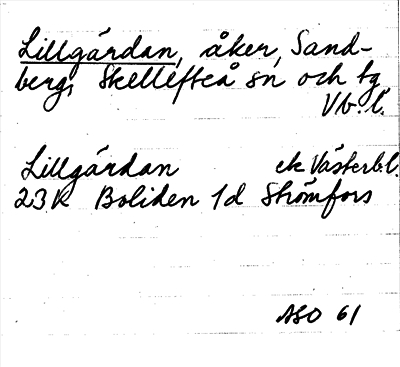 Lillgárdan, åker, Sand-
berg, Skellefteå sn och tg
Vb. l.
Lillgárdan ek Västerb.l.
23K Boliden 1d Strömfors
ASO 61